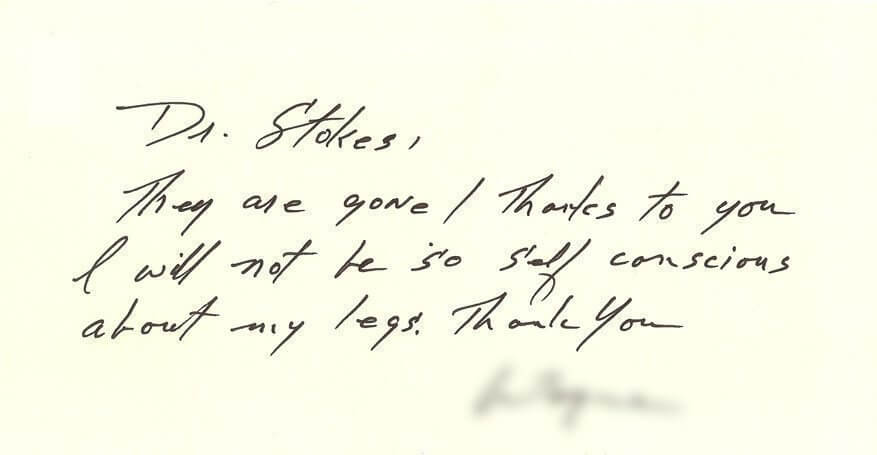 Dr. Stokes,
They are gone! Thanks to you
I will not be so self conscious
about my legs. Thank You